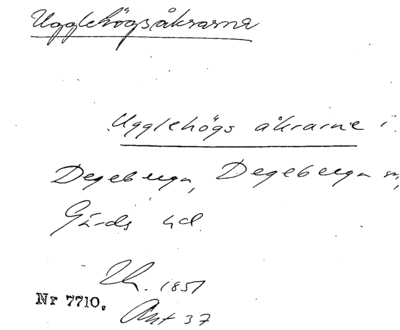 Ugglehögsåkrarna
Ugglehögs åkrarne i
Degeberga, Degeberga sn,
Gärds hd.
Lh. 1851
Nr 7710. Akt 37